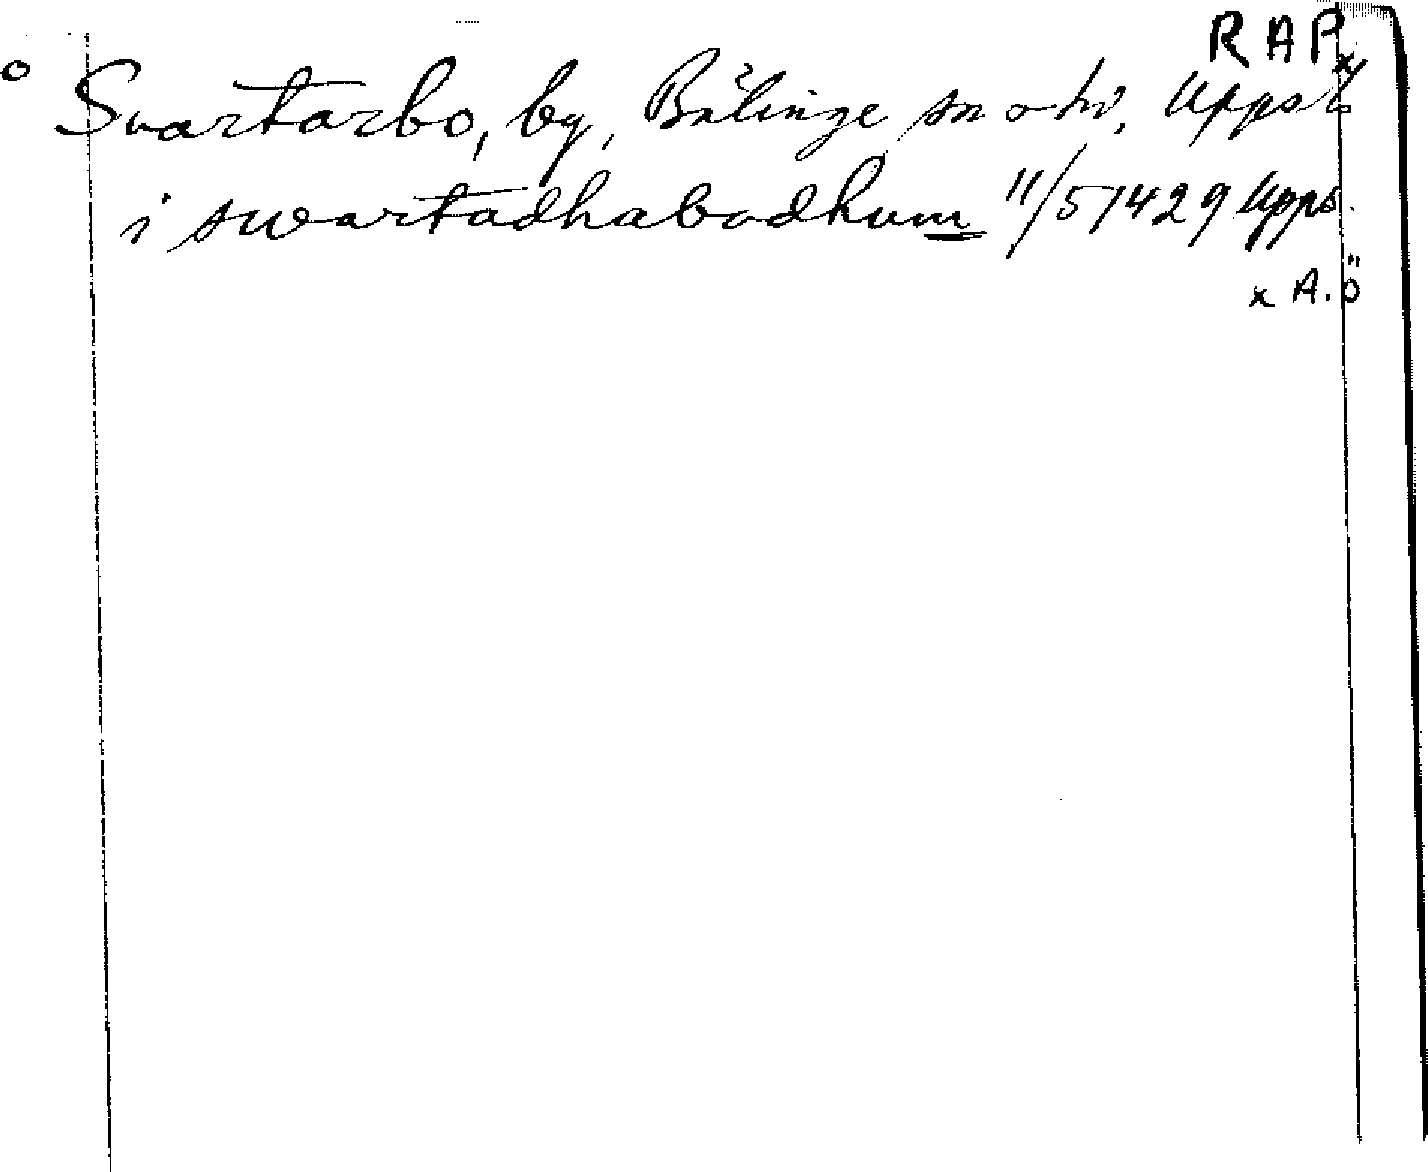 RAP x
° Svartarbo, by, Bälinge sn o hd, Upps. l.
i swartadhabodhum 11/5 1429 Upps.
x A.Ö